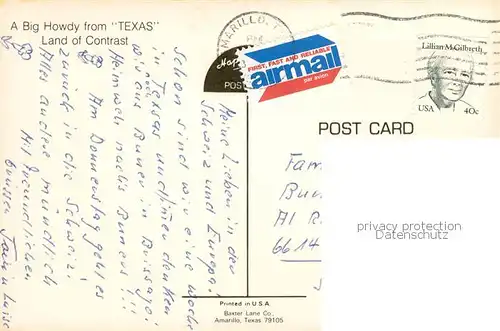 A Big Howdy from "TEXAS"
Land of Contrast
Meine Lieben in der
Schweiz und Europa!
Schon sind wir eine Woche
in Texas und
wir aus Buner in Brissago
Heimweh nachs Buneris!!!
Am Donnerstag geht es
zurück in die Schweiz!
Alles andere mündlich
Mit freundlichen
Grüssen
AMARILLO, T
PM
FIRST, FAST AND RELIABLE
airmail
par avion
Lillian M. Gilbreth
USA 40c
POST CARD
Fam
Bu
Al R
6614
privacy protection
watermark
Printed in U.S.A.
Baxter Lane Co.
Amarillo, Texas 79105